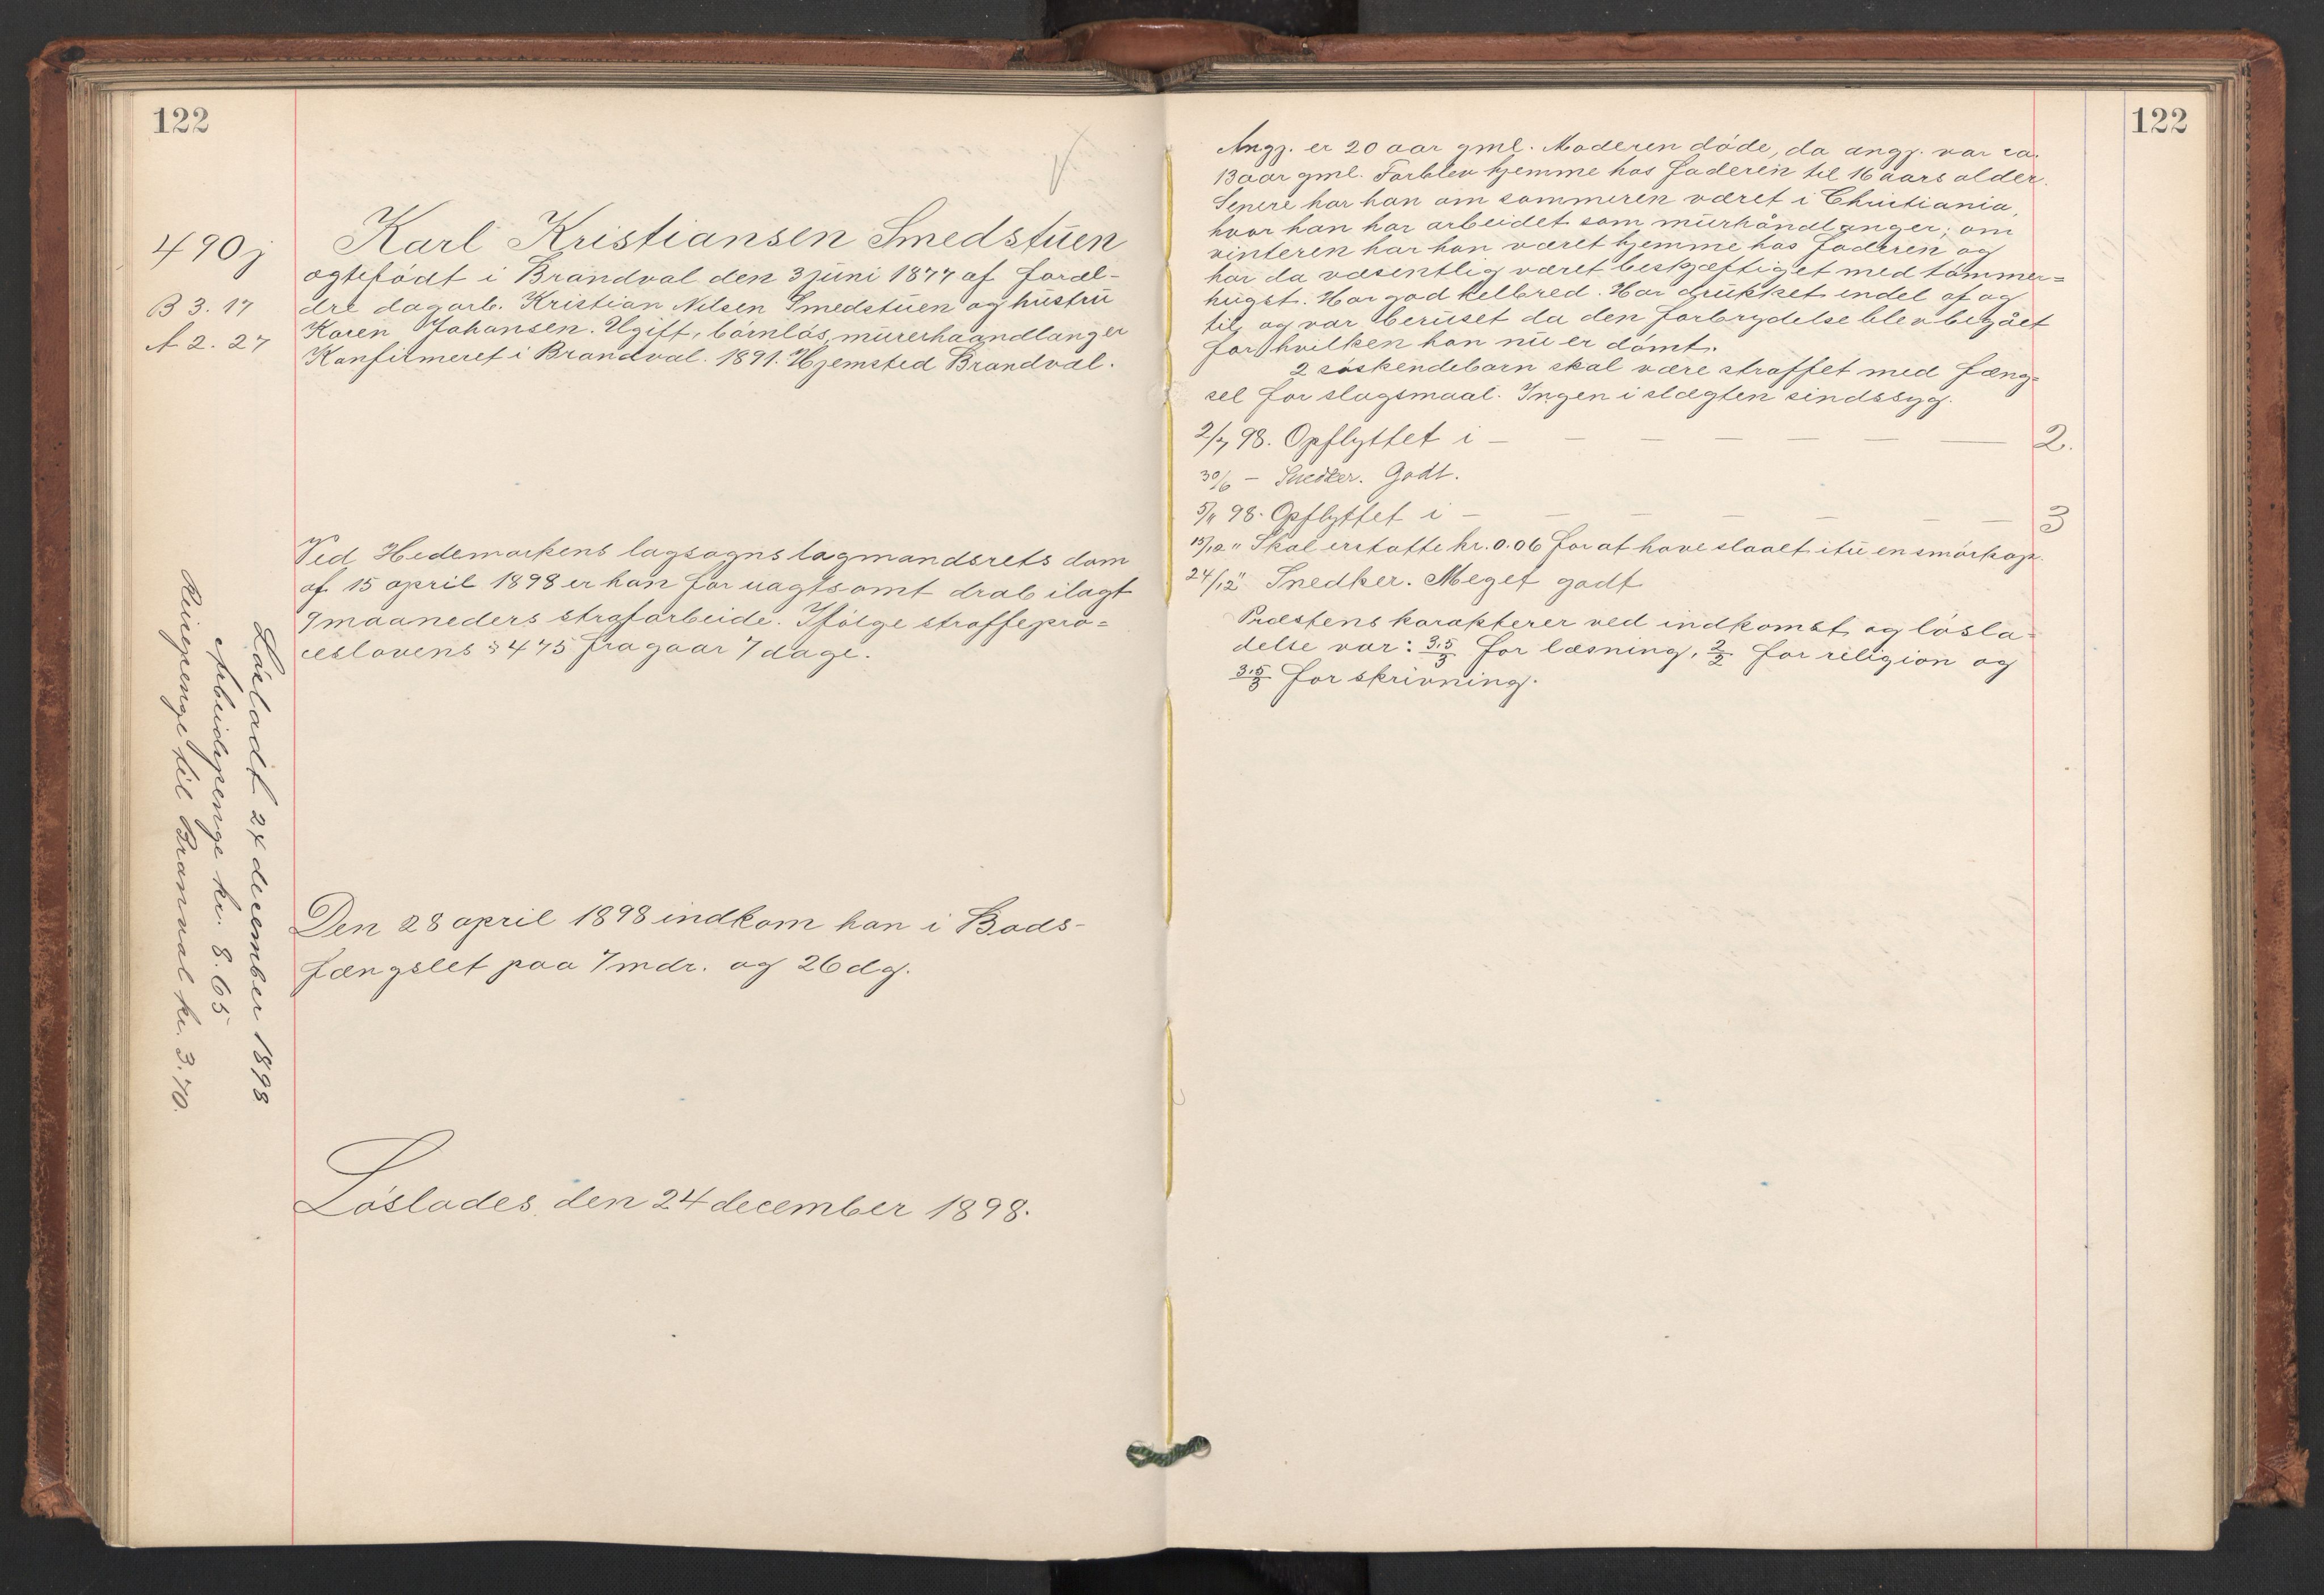 122
490j
B 3. 17
A 2. 27
Karl Kristiansen Smedstuen
ægtefödt i Brandval den 3 juni 1877 af foræl-
dre dagarb. Kristian Nilsen Smedstuen og hustru
Karen Johansen. Ugift, börnlös, murerhaandlanger
Konfirmeret i Brandval. 1891. Hjemsted Brandval.
Ved Hedemarkens lagsogns lagmandsrets dom
af 15 april 1898 er han for uagtsomt drab ilagt
9 maaneders strafarbeide. Ifölge straffepro=
ceslovens § 475 fragaar 7 dage.
Den 28 april 1898 indkom han i Bods-
fængslet paa 7 mdr. og 26 dg.
Löslades den 24 december 1898.
Lösladt 24 december 1898
Arbeidspenge kr. 8.65
Reisepenge til Branval kr. 3.70.
122
Angj. er 20 aar gml. Moderen döde, da angj. var ca.
13 aar gml. Forblev hjemme hos faderen til 16 aars alder.
Senere har han om sommeren været i Christiania,
hvor han har arbeidet som murhåndlanger; om
vinteren har han været hjemme hos faderen og
har da væsentlig været beskjæftiget med tömmer=
hugst. Har god helbred. Har drukket endel af og
til, og var beruset da den forbrydelse blev begået
for hvilken han nu er dömt.
2 söskendebarn skal være straffet med fæng=
sel for slagsmaal. Ingen i slægten sindssyg.
2/7 98. Opflyttet i — — — — — — — 2.
30/6 — Snedker. Godt.
5/11 98. Opflyttet i — — — — — — 3
15/12 " Skal erstatte kr. 0.06 for at have slaaet itu en smörkop.
24/12 " Snedker. Meget godt
Præstens karakterer ved indkomst og lösla=
delse var: 3.5/3 for læsning, 2/2 for religion og
3.5/3 for skrivning.